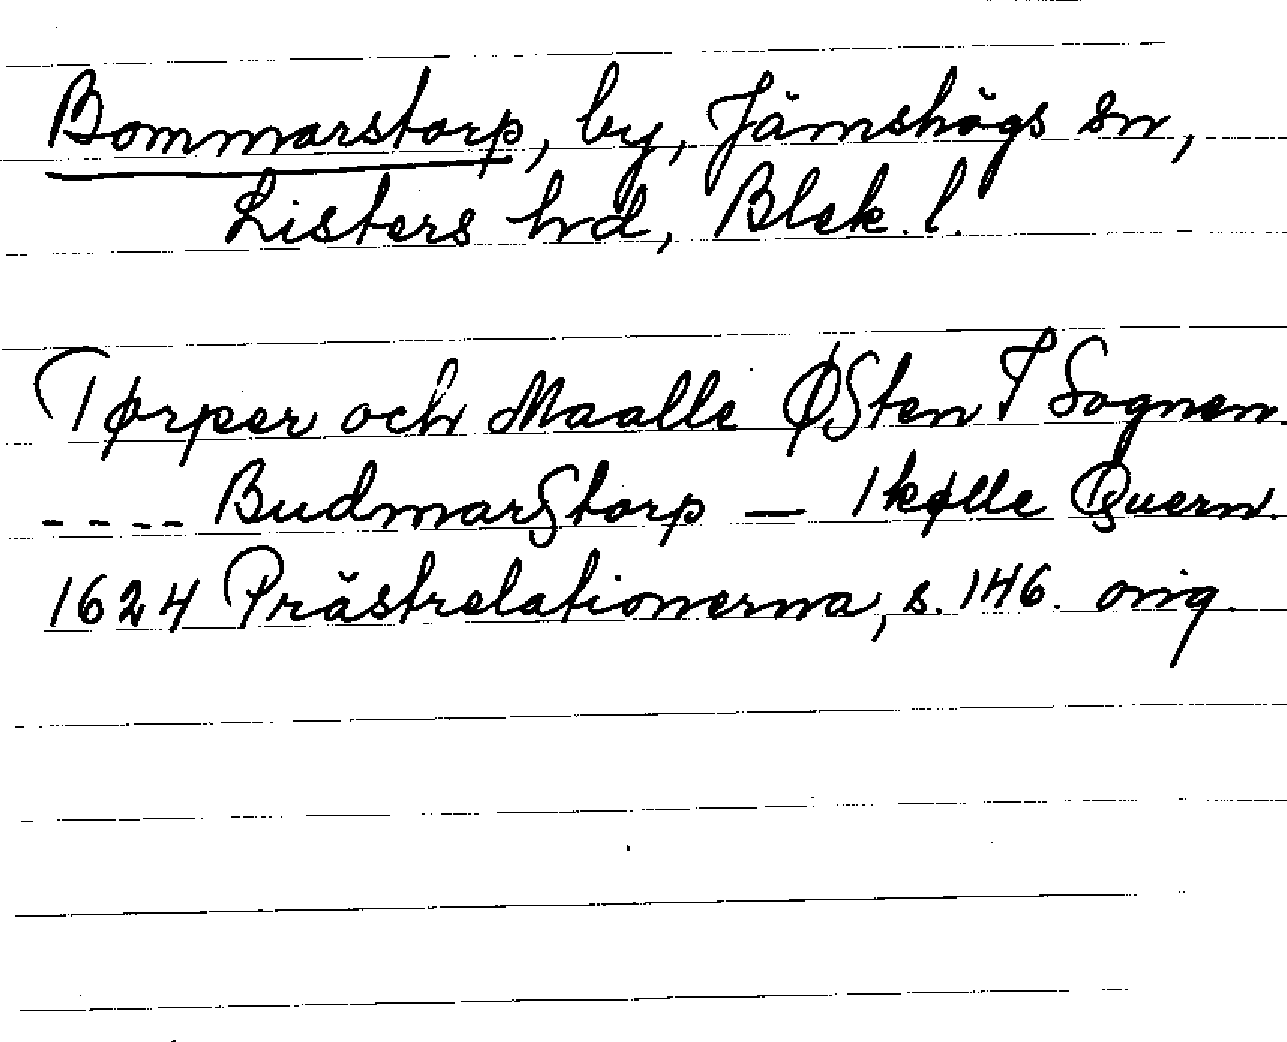 Bommarstorp, by, Jämshögs sn,
Listers hd, Blek. l.
Tørper och Maalle ØSten I Sognen.
---- BudmarStorp — 1 kølle Quern.
1624 Prästrelationerna, s. 146. orig.